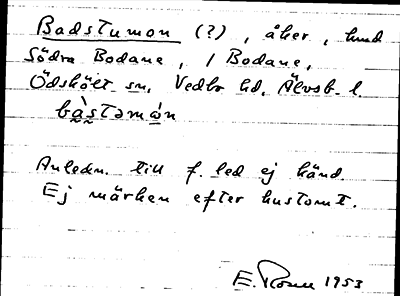 Badstumon (?), åker, hmd
Södra Bodane, / Bodane,
Ödskölt sn, Vedbo hd, Älvsb. l.
bàstəmån
Anledn. till f. led ej känd.
Ej märken efter hustomt.
E. 1953